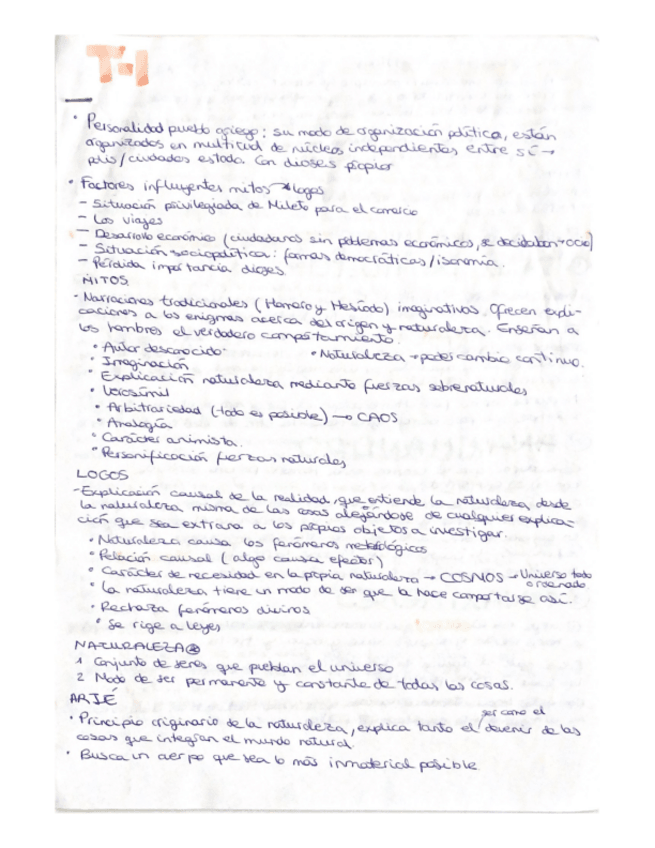 T-1
• Personalidad pueblo griego: su modo de organización política, están
organizados en multitud de núcleos independientes entre sí →
polis/ciudades estado. Con dioses propios
• Factores influyentes mitos → logos
- Situación privilegiada de Mileto para el comercio
- Los viajes
- Desarrollo económico (ciudadanos sin problemas económicos, se dedicaban → ocio)
- Situación sociopolítica: formas democráticas/isonomía.
- Pérdida importancia dioses.
MITOS.
- Narraciones tradicionales (Homero y Hesíodo) imaginativas. Ofrecen expli-
caciones a los enigmas acerca del origen y naturaleza. Enseñan a
los hombres el verdadero comportamiento.
• Autor desconocido • Naturaleza → poder cambio continuo.
• Imaginación
• Explicación naturaleza mediante fuerzas sobrenaturales
• Verosímil
• Arbitrariedad (todo es posible) → CAOS
• Analogía
• Carácter animista.
• Personificación fuerzas naturales
LOGOS
- Explicación causal de la realidad, que entiende la naturaleza desde
la naturaleza misma de las cosas alejándose de cualquier explica-
ción que sea extraña a los propios objetos a investigar.
• Naturaleza causa los fenómenos meteorológicos
• Relación causal (algo causa efector)
• Carácter de necesidad en la propia naturaleza → COSMOS → Universo todo
ordenado
• La naturaleza tiene un modo de ser que la hace comportarse así.
• Rechaza fenómenos divinos
• Se rige a leyes
NATURALEZA
1 Conjunto de seres que pueblan el universo
2 Modo de ser permanente y constante de todas las cosas.
ARJÉ
ser como el
• Principio originario de la naturaleza, explica tanto el / devenir de las
cosas que integran el mundo natural.
• Busca un cuerpo que sea lo más inmaterial posible